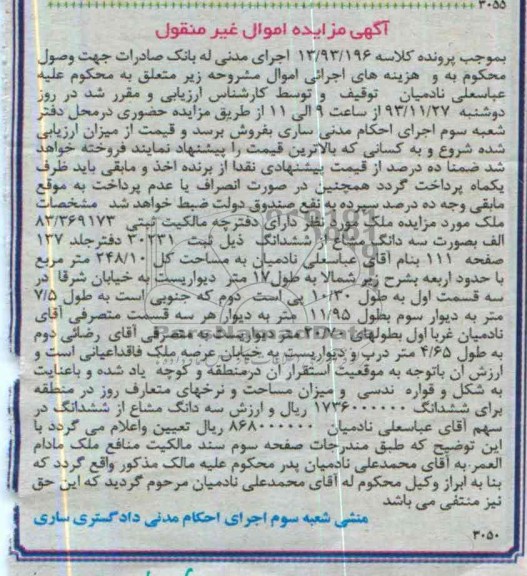 ۳۰۵۵
آگهی مزایده اموال غیر منقول
بموجب پرونده کلاسه ۱۳/۹۳/۱۹۶ اجرای مدنی له بانک صادرات جهت وصول
محکوم به و هزینه های اجرائی اموال مشروحه زیر متعلق به محکوم علیه
عباسعلی نادمیان توقیف و توسط کارشناس ارزیابی و مقرر شد در روز
دوشنبه ۹۳/۱۱/۲۷ از ساعت ۹ الی ۱۱ از طریق مزایده حضوری درمحل دفتر
شعبه سوم اجرای احکام مدنی ساری بفروش برسد و قیمت از میزان ارزیابی
شده شروع و به کسانی که بالاترین قیمت را پیشنهاد نمایند فروخته خواهد
شد ضمنا ده درصد از قیمت پیشنهادی نقدا از برنده اخذ و مابقی باید ظرف
یکماه پرداخت گردد همچنین در صورت انصراف یا عدم پرداخت به موقع
مابقی وجه ده درصد سپرده به نفع صندوق دولت ضبط خواهد شد مشخصات
ملک مورد مزایده ملک مورد نظر دارای دفترچه مالکیت ثبتی ۸۳/۳۶۹۱۷۳
الف بصورت سه دانگ مشاع از ششدانگ ذیل ثبت ۳۰۲۳۱ دفترجلد ۱۳۷
صفحه ۱۱۱ بنام آقای عباسعلی نادمیان به مساحت کل ۲۴۸/۱۰ متر مربع
با حدود اربعه بشرح زیر شمالا به طول ۱۷ متر دیواریست به خیابان شرقا در
سه قسمت اول به طول ۱۰/۳۰ پی است دوم که جنوبی است به طول ۷/۵
متر به دیوار سوم بطول ۱۱/۹۵ متر به دیوار هر سه قسمت متصرفی آقای
نادمیان غربا اول بطولهای متر دیواریست به متصرفی آقای رضائی دوم
به طول ۴/۶۵ متر درب و دیواریست به خیابان عرصه ملک فاقداعیانی است و
ارزش آن باتوجه به موقعیت استقرار آن درمنطقه و کوچه یاد شده و باعنایت
به شکل و قواره ندسی و میزان مساحت و نرخهای متعارف روز در منطقه
برای ششدانگ ۱۷۳۶۰۰۰۰۰۰ ریال و ارزش سه دانگ مشاع از ششدانگ در
سهم آقای عباسعلی نادمیان ۸۶۸۰۰۰۰۰۰ ریال تعیین واعلام می گردد با
این توضیح که طبق مندرجات صفحه سوم سند مالکیت منافع ملک مادام
العمر به آقای محمدعلی نادمیان پدر محکوم علیه مالک مذکور واقع گردد که
بنا به ابراز وکیل محکوم له آقای محمدعلی نادمیان مرحوم گردید که این حق
نیز منتفی می باشد
منشی شعبه سوم اجرای احکام مدنی دادگستری ساری
۳۰۵۰